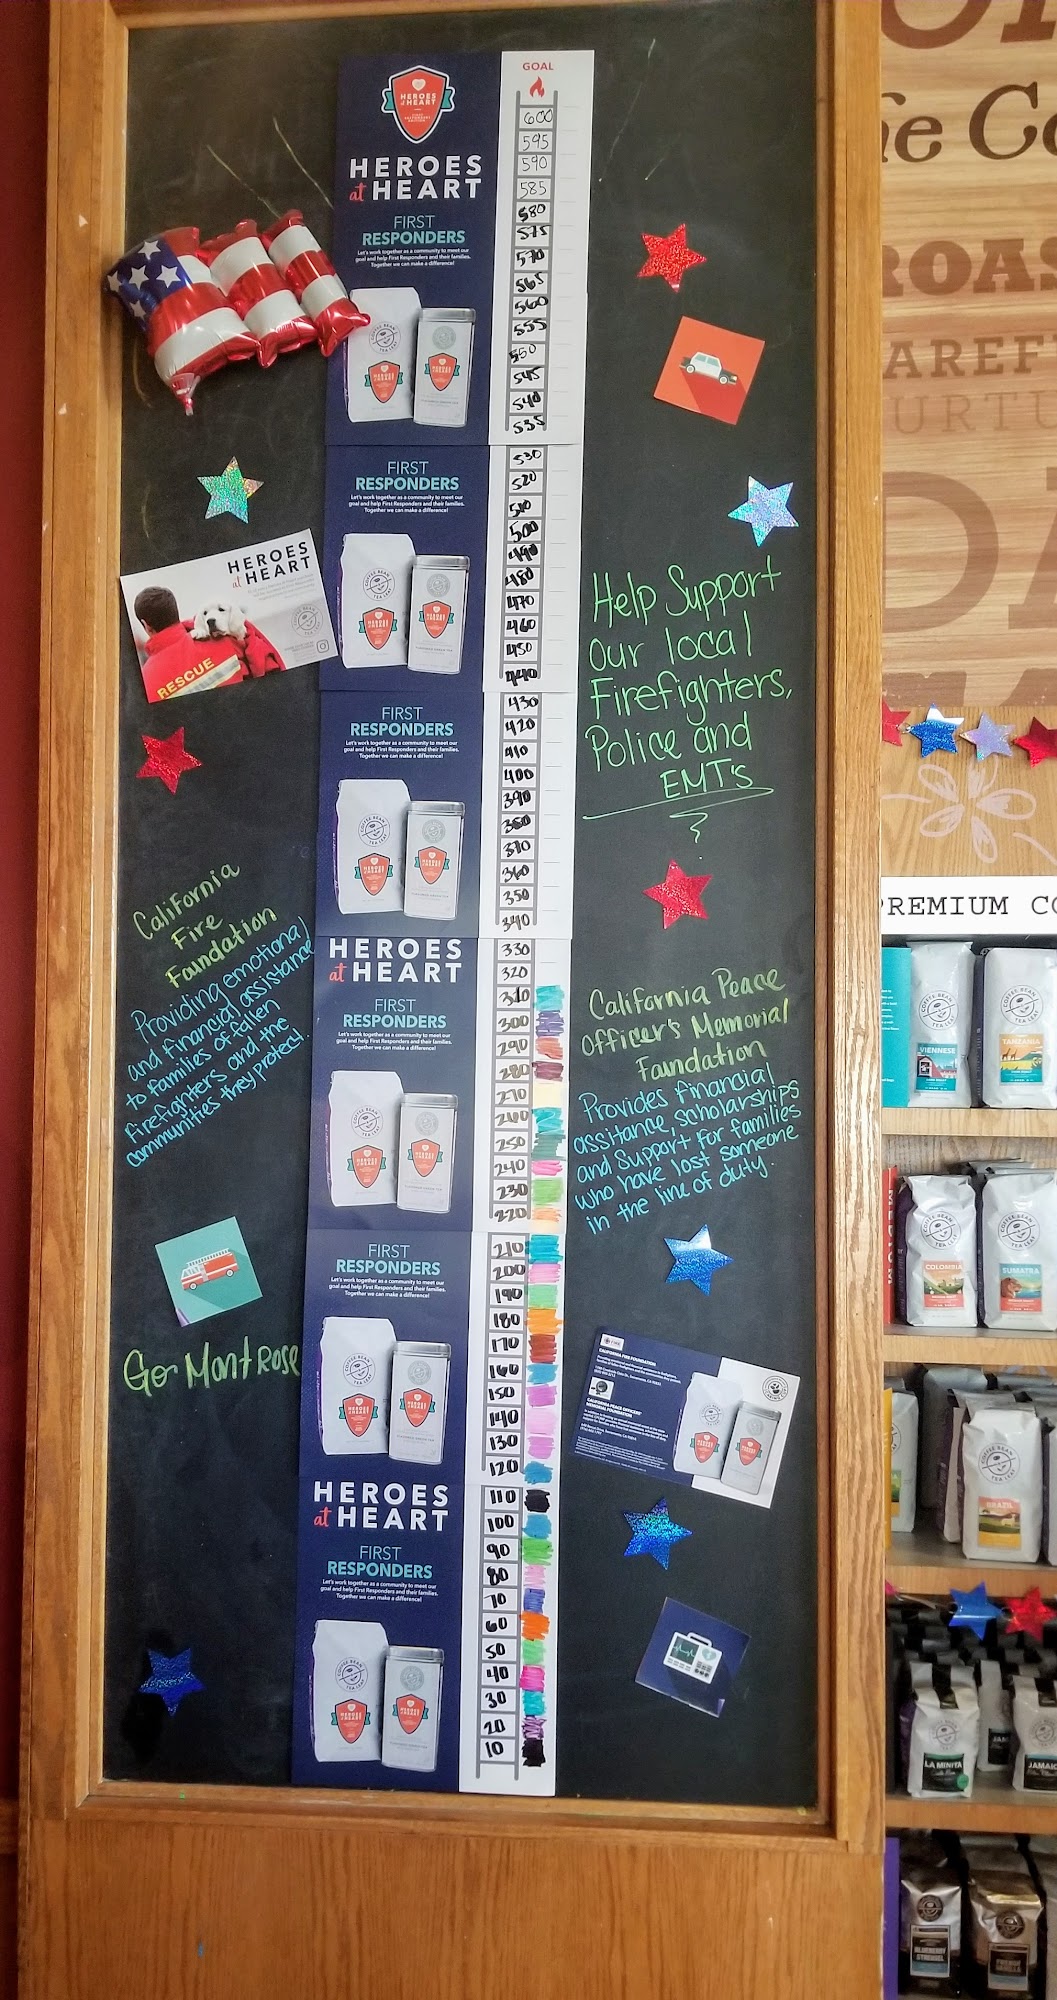 GOAL
HEROES
at HEART
HEROES
at HEART
FIRST
RESPONDERS
Let's work together as a community to meet our
goal and help First Responders and their families.
Together we can make a difference!
600
595
590
585
580
575
570
565
560
555
550
545
540
535
COFFEE BEAN
TEA LEAF
FIRST
RESPONDERS
Let's work together as a community to meet our
goal and help First Responders and their families.
Together we can make a difference!
530
520
510
500
490
480
470
460
450
440
COFFEE BEAN
TEA LEAF
HEROES
at HEART
RESCUE
Help Support
Our local
Firefighters,
Police and
EMT's
FIRST
RESPONDERS
Let's work together as a community to meet our
goal and help First Responders and their families.
Together we can make a difference!
430
420
410
400
390
380
370
360
350
340
COFFEE BEAN
TEA LEAF
California
Fire
Foundation
Providing emotional
and financial assistance
to families of fallen
firefighters and the
communities they protect!
HEROES
at HEART
FIRST
RESPONDERS
Let's work together as a community to meet our
goal and help First Responders and their families.
Together we can make a difference!
330
320
310
300
290
280
270
260
250
240
230
220
COFFEE BEAN
TEA LEAF
California Peace
Officer's Memorial
Foundation
Provides financial
assitance, scholarships
and Support for families
who have lost someone
in the line of duty.
Go Montrose
FIRST
RESPONDERS
Let's work together as a community to meet our
goal and help First Responders and their families.
Together we can make a difference!
210
200
190
180
170
160
150
140
130
120
COFFEE BEAN
TEA LEAF
CALIFORNIA FIRE FOUNDATION
CALIFORNIA PEACE OFFICERS'
MEMORIAL FOUNDATION
HEROES
at HEART
FIRST
RESPONDERS
Let's work together as a community to meet our
goal and help First Responders and their families.
Together we can make a difference!
110
100
90
80
70
60
50
40
30
20
10
COFFEE BEAN
TEA LEAF
he Co
ROAS
AREF
URTU
PREMIUM CO
COFFEE BEAN
TEA LEAF
VIENNESE
TANZANIA
MEDIUM
COLOMBIA
SUMATRA
COFFEE BEAN
TEA LEAF
BRAZIL
LA MINITA
JAMAIC
BLUEBERRY
STREUSEL
FRENCH
VANILLA